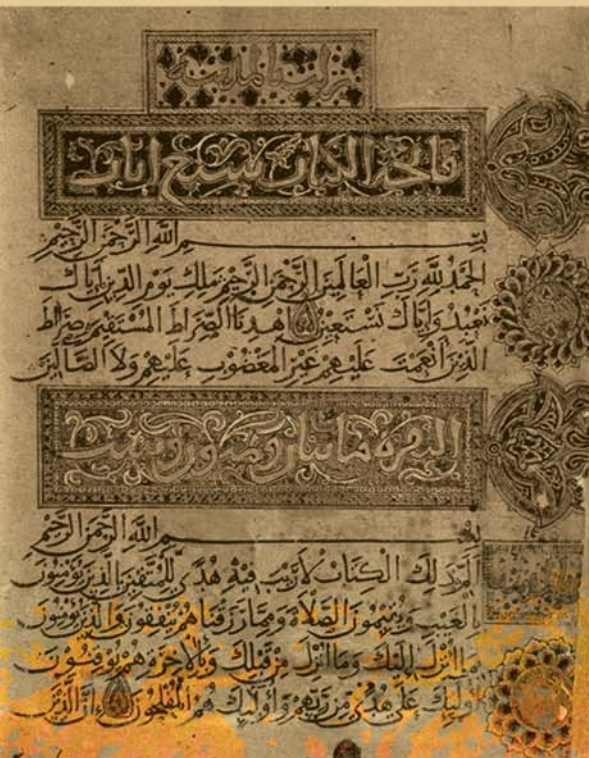 نزلت بالمدينة
فاتحة الكتاب سبع ايات
بِسْمِ اللَّهِ الرَّحْمَنِ الرَّحِيْمِ
الحَمْدُ لِلَّهِ رَبِّ الْعَالَمِيْنَ الرَّحْمَنِ الرَّحِيْمِ مَلِكِ يَوْمِ الدِّيْنِ اِيَّاكَ
نَعْبُدُ وَاِيَّاكَ نَسْتَعِيْنُ اِهْدِنَا الصِّرَاطَ المُسْتَقِيْمَ صِرَاطَ
الَّذِيْنَ أَنْعَمْتَ عَلَيْهِمْ غَيْرِ المَغْضُوْبِ عَلَيْهِمْ وَلَا الضَّالِّيْنَ
البقره مايتان
بِسْمِ اللَّهِ الرَّحْمَنِ الرَّحِيْمِ
الٓمٓ ذَلِكَ الْكِتَابُ لَا رَيْبَ فِيْهِ هُدًى لِلْمُتَّقِيْنَ الَّذِيْنَ يُوْمِنُوْنَ
بِالْغَيْبِ وَيُقِيْمُوْنَ الصَّلَاةَ وَمِمَّا رَزَقْنَاهُمْ يُنْفِقُوْنَ وَالَّذِيْنَ يُوْمِنُوْنَ
بِمَا أُنْزِلَ اِلَيْكَ وَمَا أُنْزِلَ مِنْ قَبْلِكَ وَبِالْآخِرَةِ هُمْ يُوْقِنُوْنَ
أُوْلَيِكَ عَلَى هُدًى مِنْ رَبِّهِمْ وَأُوْلَيِكَ هُمُ الْمُفْلِحُوْنَ إِنَّ الَّذِيْنَ